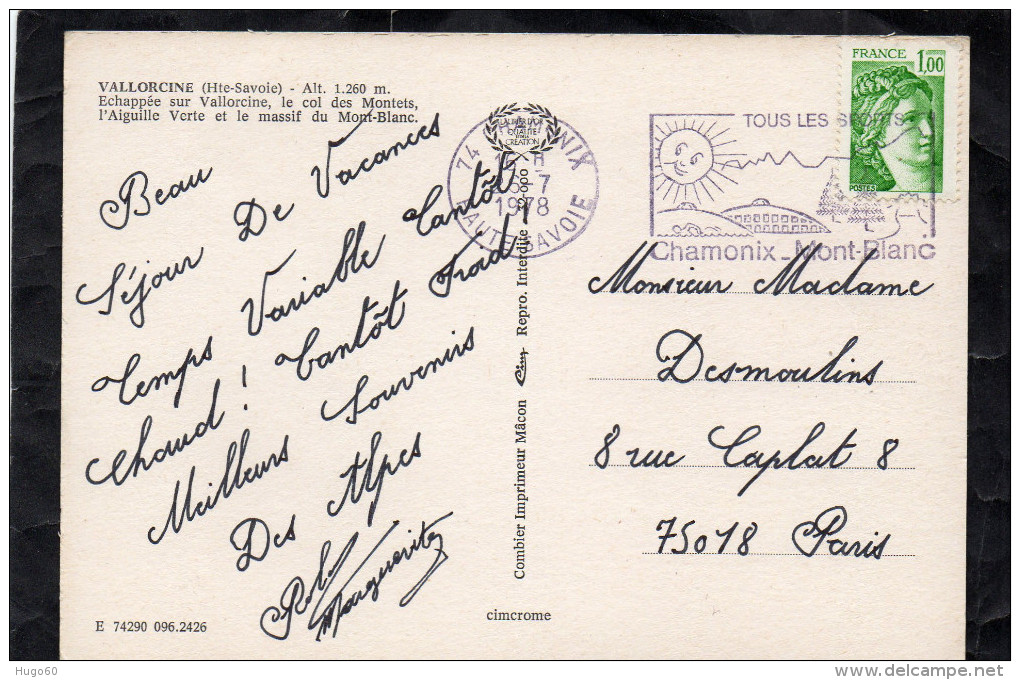 VALLORCINE (Hte-Savoie) - Alt. 1.260 m.
Echappée sur Vallorcine, le col des Montets,
l'Aiguille Verte et le massif du Mont-Blanc.
Beau
Séjour De Vacances
Temps Variable Tantôt
Chaud ! Tantôt Froid !
Meilleurs Souvenirs
Des Alpes
Marguerite
E 74290 096.2426
Combier Imprimeur Mâcon Cim Repro. Interdite
cimcrome
QUALITÉ
CRÉATION
74 CHAMONIX
15 H
7
1978
HAUTE-SAVOIE
TOUS LES SPORTS
Chamonix_Mont-Blanc
FRANCE
1,00
POSTES
Monsieur Madame
Desmoulins
8 rue Caplat 8
75018 Paris
Hugo60
www.delcampe.net